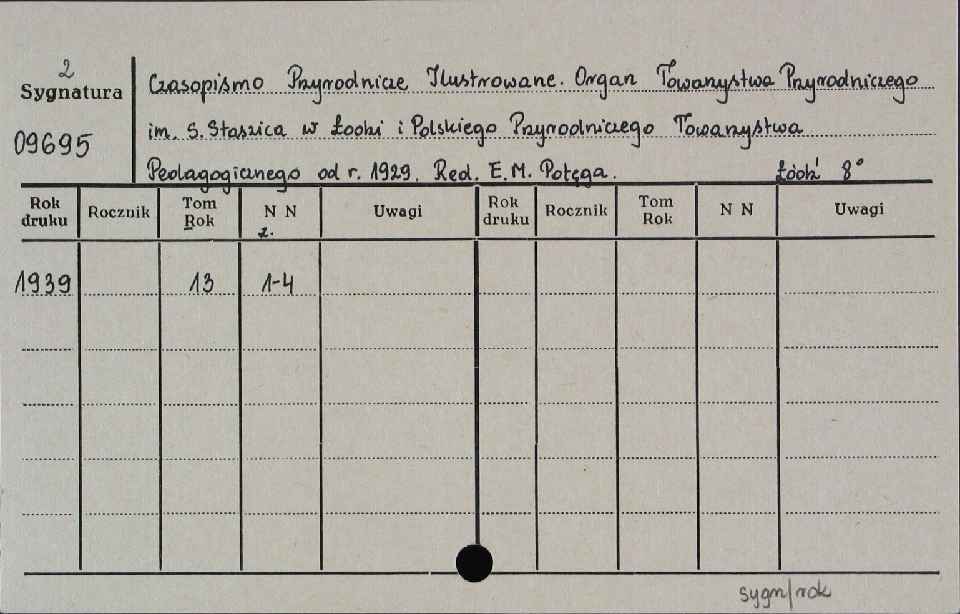 2
Sygnatura
09695
Czasopismo Przyrodnicze Ilustrowane. Organ Towarzystwa Przyrodniczego
im. S. Staszica w Łodzi i Polskiego Przyrodniczego Towarzystwa
Pedagogicznego od r. 1929. Red. E. M. Potęga. Łódź 8°
Rok druku Rocznik Tom Rok N N z. Uwagi Rok druku Rocznik Tom Rok N N Uwagi
1939 13 1-4
sygn/rok